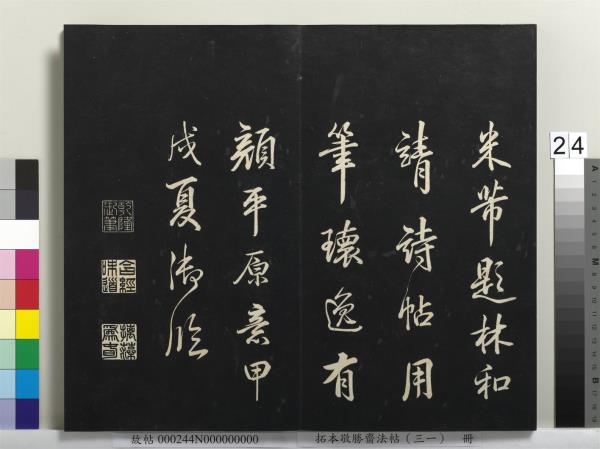 米芾題林和
靖詩帖用
筆瓌逸有
顏平原意甲
戌夏御臨
乾隆御筆
含經味道
24
故帖 000244N000000000
拓本敬勝齋法帖（三一） 冊
A
M
B